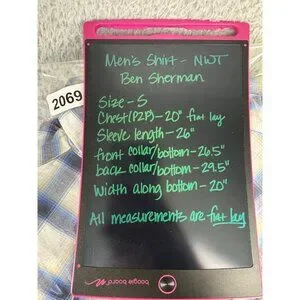 Men's Shirt - NWT
Ben Sherman
2069
Size - S
Chest (P2P) - 20" flat lay
Sleeve length - 26"
front collar/bottom - 26.5"
back collar/bottom - 29.5"
Width along bottom - 20"
All measurements are flat lay
boogie board